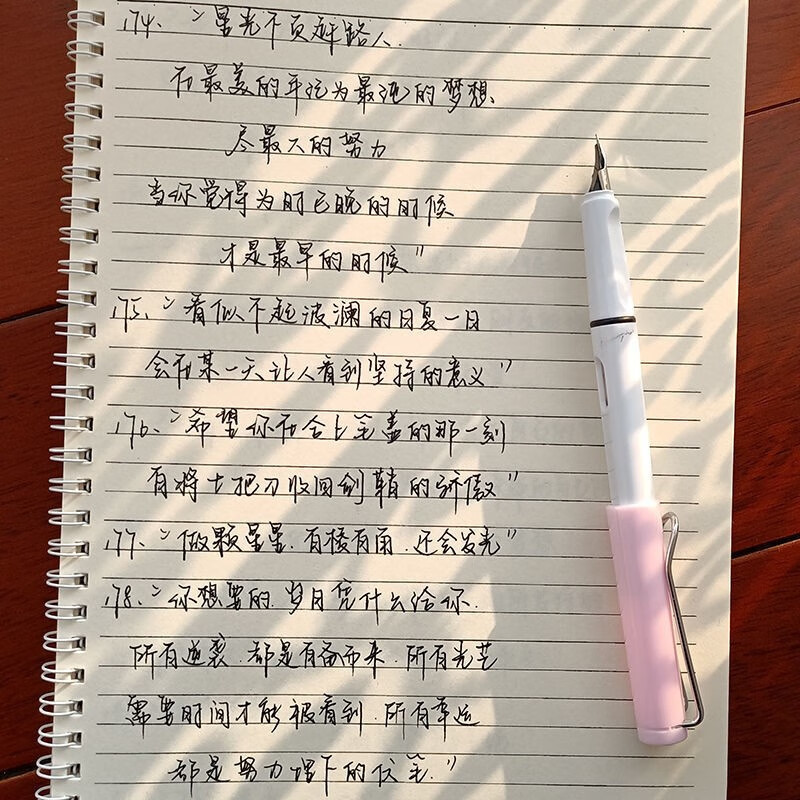 174、“星光不负赶路人.
在最美的年纪为最纯的梦想、
尽最大的努力
当你觉得为时已晚的时候
才是最早的时候”
175、“看似不起波澜的日复一日
会在某一天让人看到坚持的意义”
176、“希望你在合上笔盖的那一刻
有将士把刀收回剑鞘的骄傲”
177、“做颗星星.有棱有角.还会发光”
178、“你想要的.岁月凭什么给你.
所有逆袭.都是有备而来.所有光芒
需要时间才能被看到.所有幸运
都是努力埋下的伏笔.”